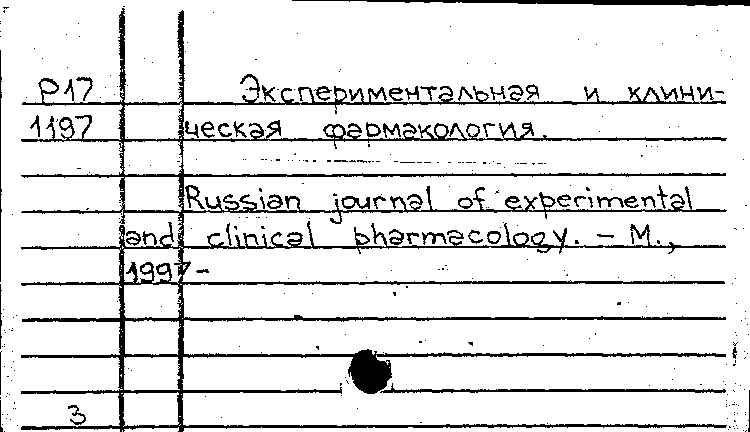 Р17 Экспериментальная и клини-
1197 ческая фармакология.
Russian journal of experimental
and clinical pharmacology. – М.,
1997-
3